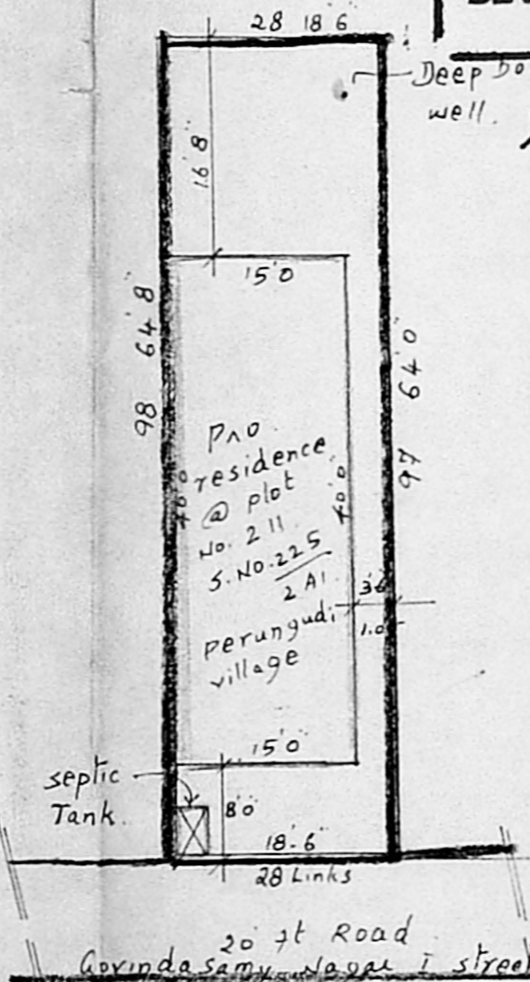 28 18'6"
Deep Bo
well.
16'8"
15'0
98 64'8"
97 64'0"
P∧O
residence
@ plot
No. 211.
S.No. 225
2 A1.
perungudi
village
40'0
40'0
3'6
1.0
15'0"
septic
Tank.
8'0
18-6"
28 Links
20' ft Road
Govinda Samy Nagar I street